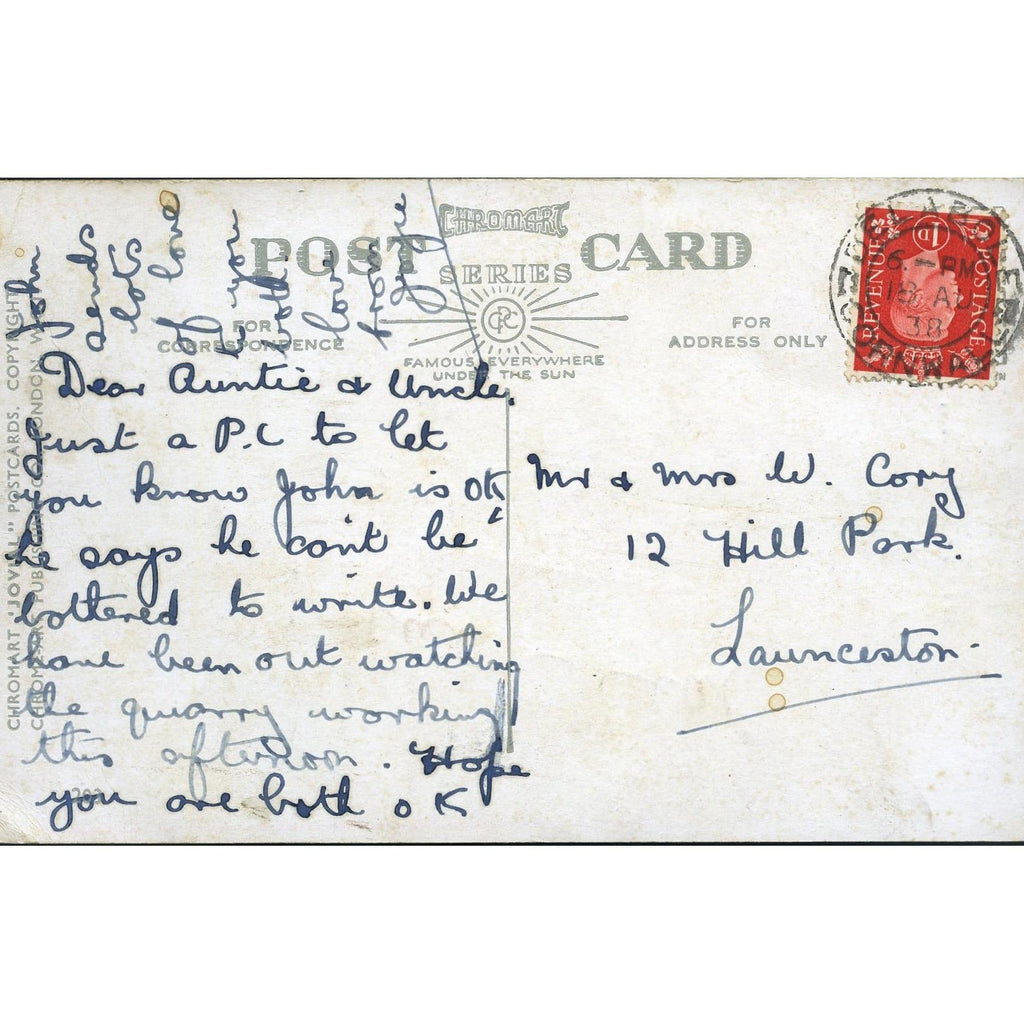 CHROMART
POST CARD
SERIES
CPC
FOR
CORRESPONDENCE
FAMOUS EVERYWHERE
UNDER THE SUN
FOR
ADDRESS ONLY
Dear Auntie & Uncle,
Just a P.C to let
you know John is OK
he says he can't be
bothered to write. We
have been out watching
the quarry working
this afternoon. Hope
you are both OK
John
sends
lots
of love
to you
both
love
from
Mr & Mrs W. Cory
12 Hill Park.
Launceston
POSTAGE
REVENUE
1D
6. - PM
18 AU
38
CHROMART "JOVIAL" POSTCARDS. COPYRIGHT
LONDON, W.